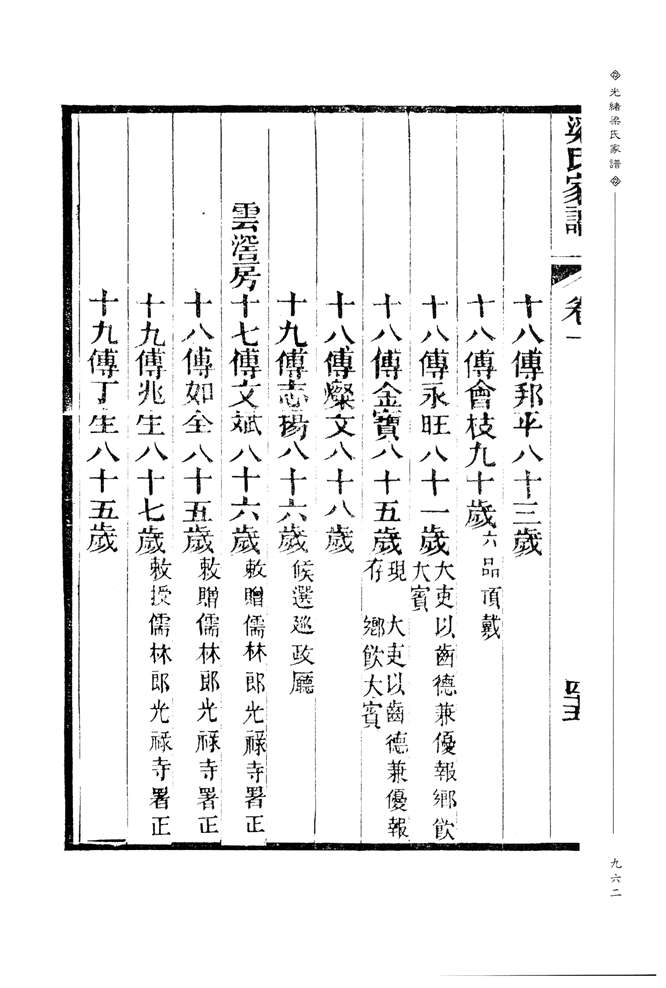 光緒梁氏家譜
梁氏家譜 卷一 四十五
十八傳邦平八十三歲
十八傳會枝九十歲 六品頂戴
十八傳永旺八十一歲 大吏以齒德兼優報鄉飲大賓
十八傳金寶八十五歲 現存 大吏以齒德兼優報鄉飲大賓
十八傳燦文八十八歲
十九傳志揚八十六歲 候選巡政廳
雲滘房 十七傳文斌八十六歲 敕贈儒林郎光祿寺署正
十八傳如全八十五歲 敕贈儒林郎光祿寺署正
十九傳兆生八十七歲 敕授儒林郎光祿寺署正
十九傳丁生八十五歲
九六二